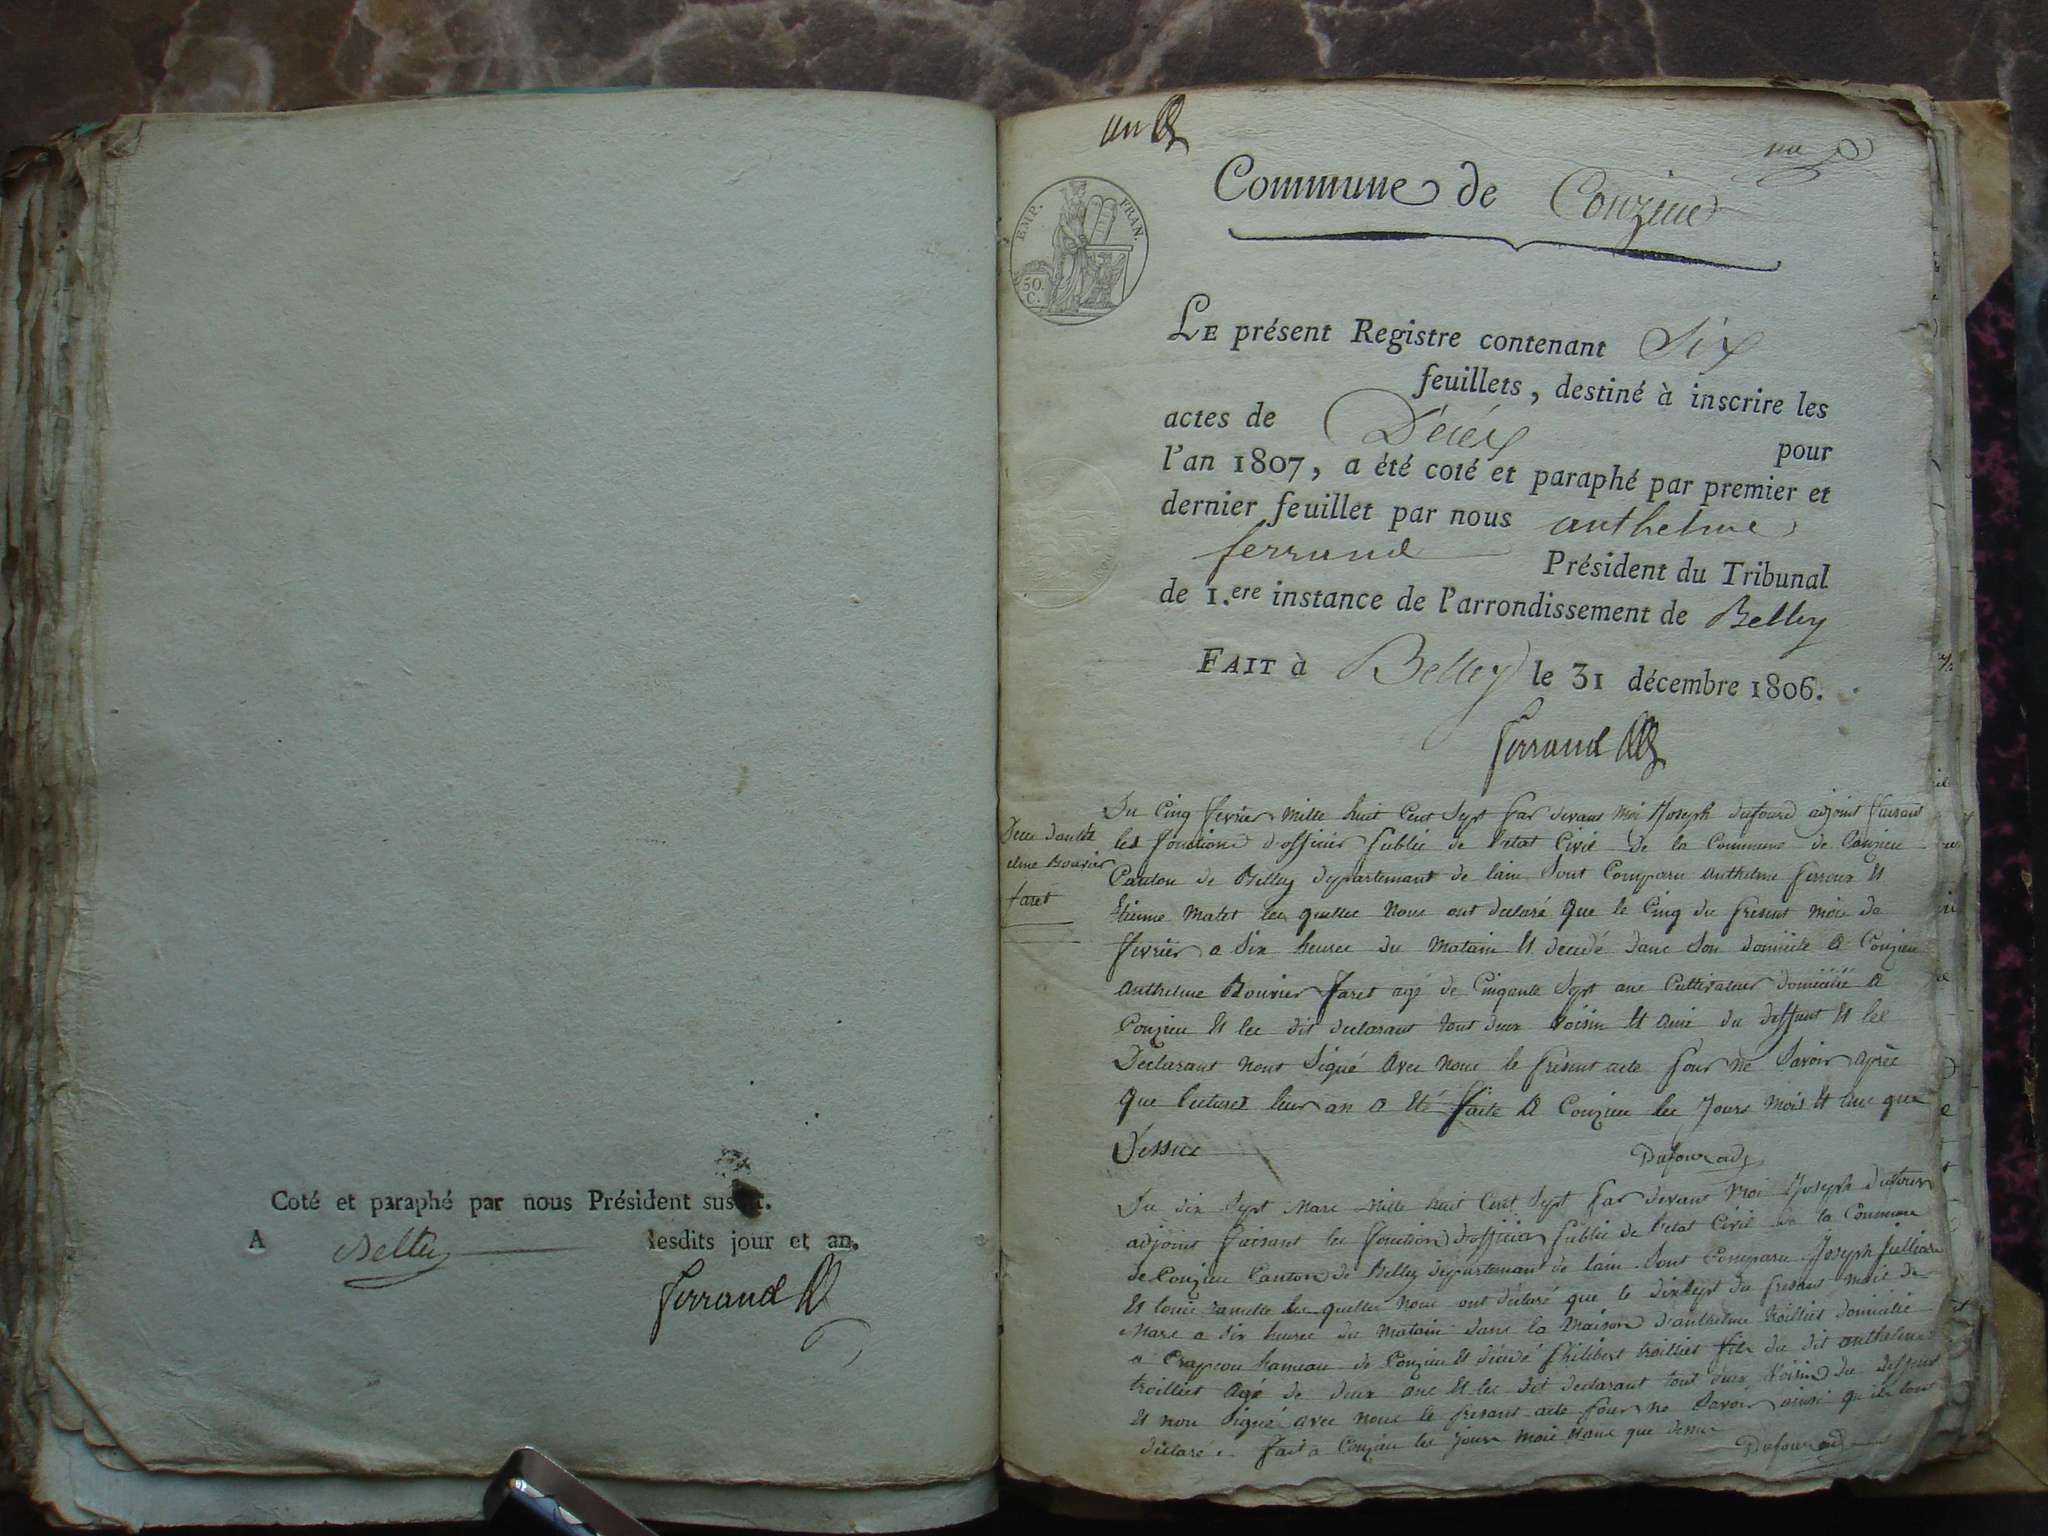 Coté et paraphé par nous Président susdit.
A Belley lesdits jour et an.
Ferrand
an
Commune de Conzieu
EMP. FRAN.
50.
C.
LE présent Registre contenant Six
feuillets, destiné à inscrire les
actes de Décés pour
l'an 1807, a été coté et paraphé par premier et
dernier feuillet par nous anthelme
ferrand Président du Tribunal
de 1.ere instance de l'arrondissement de Belley
FAIT à Belley le 31 décembre 1806.
Ferrand
Deces danth
elme Bouvier
faret
Du Cinq fevrier mille huit Cent Sept par devant moi Joseph dufour adjoint faisant
les fonctions d'officier public de l'etat Civil de la Commune de Conzieu
Canton de Belley departement de lain Sont Comparu anthelme ferroux et
Etienne Matet les quelles nous ont declaré que le Cinq du present mois de
fevrier a Six heures du matain et decedé dans Son domicile a Conzieu
anthelme Bouvier faret agé de Cinqante Sept ans Cultivateur domicilié a
Conzieu et les dit declarant tout deux voisin et ami du deffunt et les
Declarant nont Signé avec nous le present acte pour ne Savoir après
que lecture leur an a eté faite a Conzieu les Jours mois et ans que
Dessus
Dufour adj
Du dix Sept mars mille huit Cent Sept par devant moi Joseph dufour
adjoint faisant les fonction d'officier public de l'etat Civil de la Commune
de Conzieu Canton de Belley departement de lain Sont Comparu Joseph Julliard
et louis ramette les quelles nous ont déclaré que le dixsept du present mois de
mars a Six heures du matain dans la maison d'anthelme troilliet domicilié
a Crapeou hameau de Conzieu et décédé philibert troilliet fils du dit anthelme
troilliet agé de deux ans et les dit declarant tout deux voisin du deffunt
et non Signé avec nous le present acte pour ne Savoir ainsi qu ils lont
déclaré. fait a Conzieu les Jours mois et ans que dessus
Dufour adj